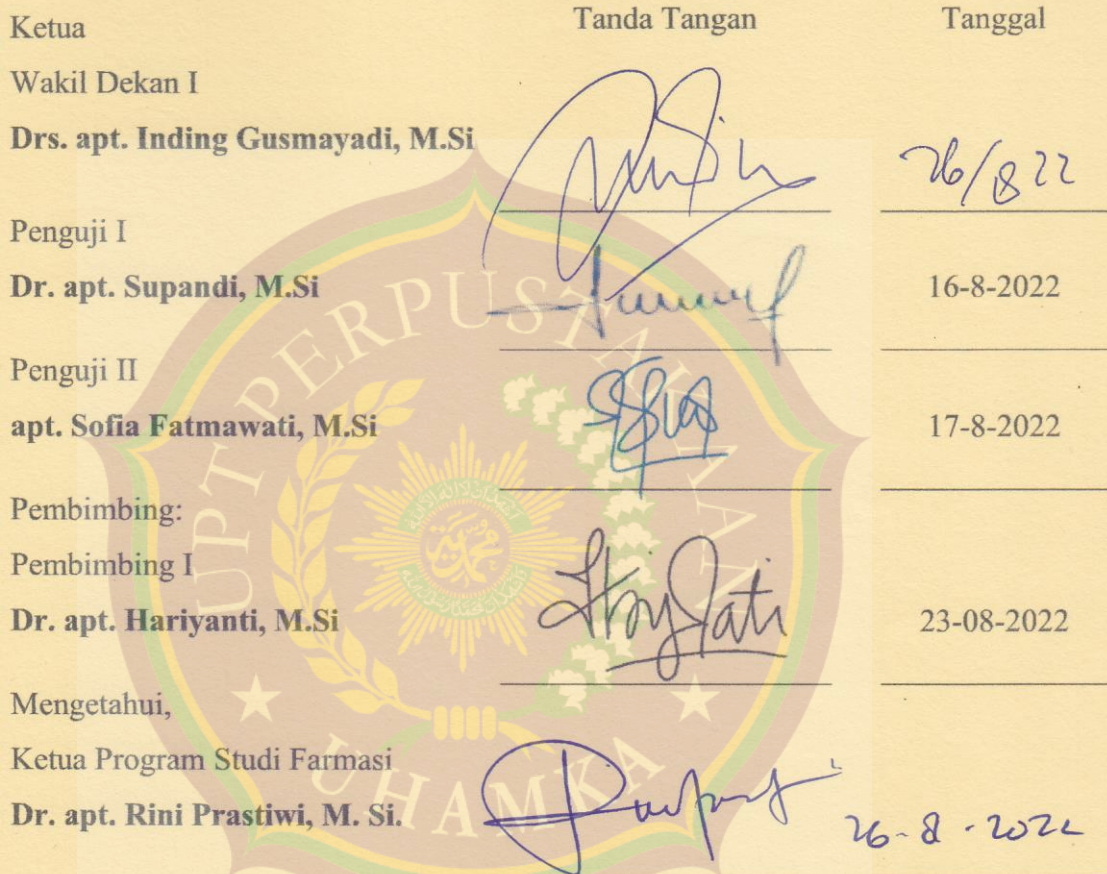 Ketua Tanda Tangan Tanggal
Wakil Dekan I
Drs. apt. Inding Gusmayadi, M.Si 26/8 22
Penguji I
Dr. apt. Supandi, M.Si 16-8-2022
Penguji II
apt. Sofia Fatmawati, M.Si 17-8-2022
Pembimbing:
Pembimbing I
Dr. apt. Hariyanti, M.Si 23-08-2022
Mengetahui,
Ketua Program Studi Farmasi
Dr. apt. Rini Prastiwi, M. Si. 26-8-2022
UPT PERPUSTAKAAN
UHAMKA